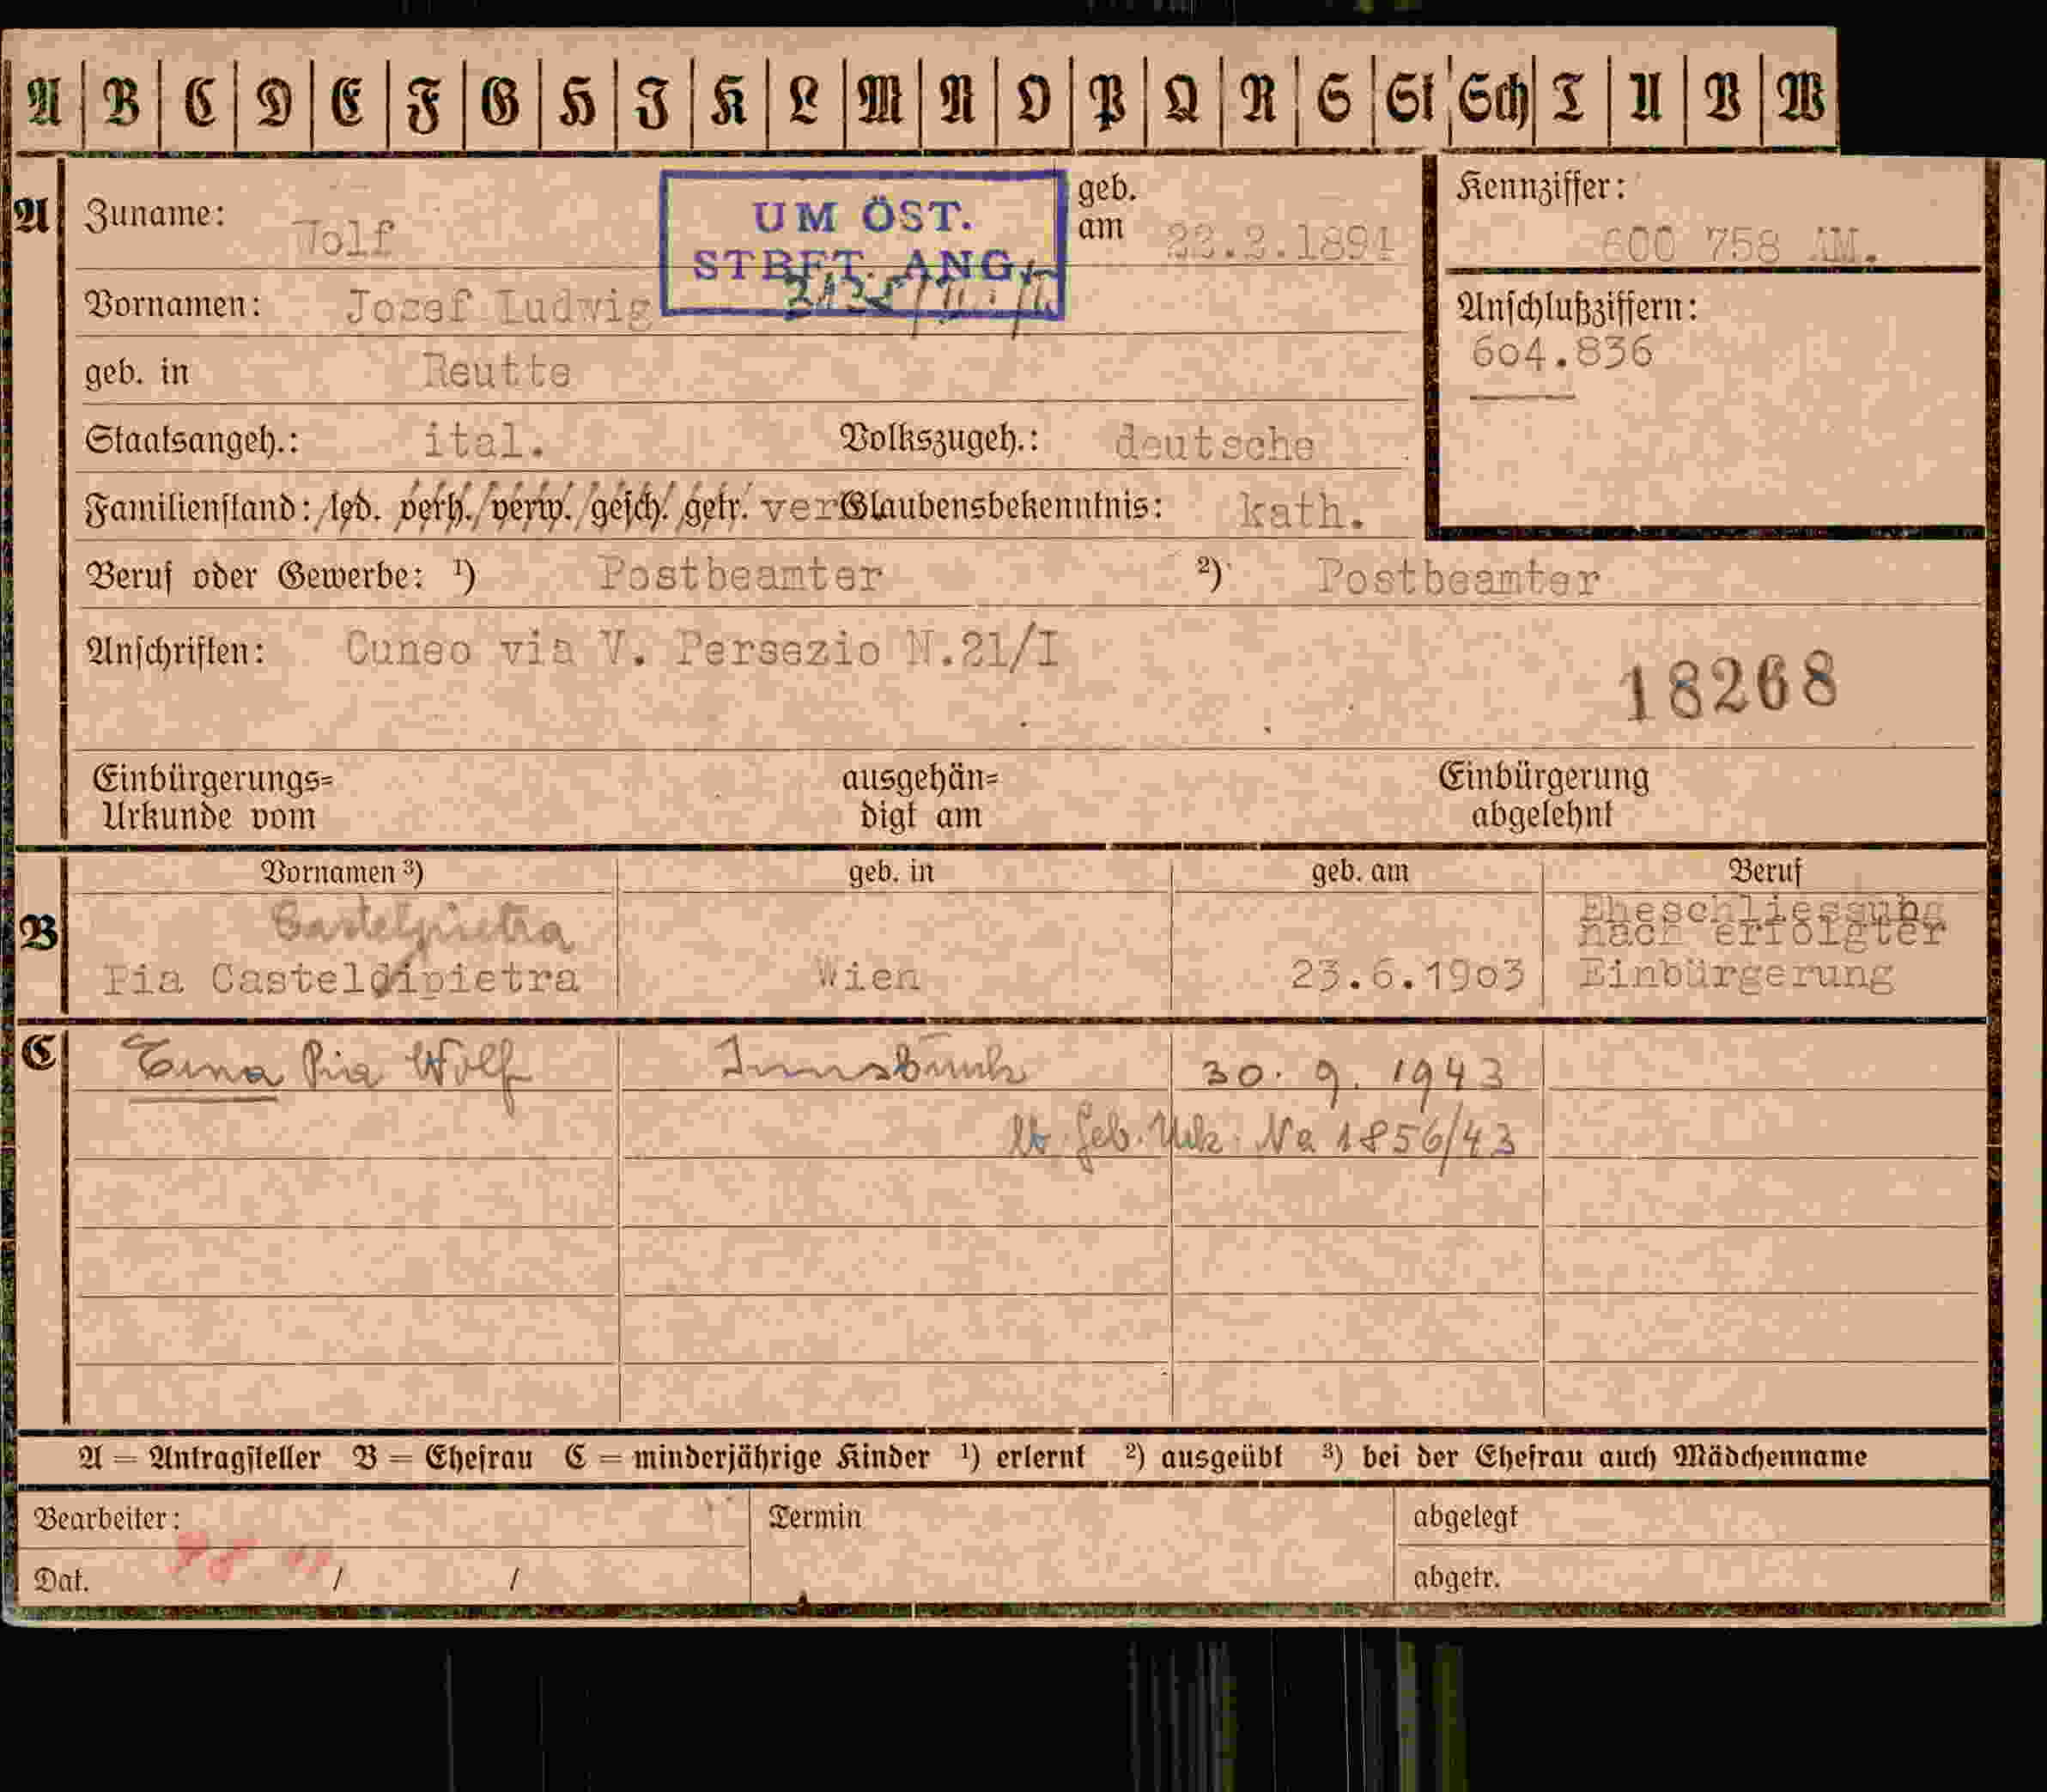 A B C D E F G H J K L M N O P Q R S St Sch T U V W
A Zuname: Wolf
UM ÖST.
STBFT. ANG.
geb. am 22.2.1894
Kennziffer:
600 758 AM.
Vornamen: Josef Ludwig
Anschlußziffern:
604.836
geb. in Reutte
Staatsangeh.: ital. Volkszugeh.: deutsche
Familienstand: led. verh./verw./gesch./getr. ver Glaubensbekenntnis: kath.
Beruf oder Gewerbe: ¹) Postbeamter ²) Postbeamter
Anschriften: Cuneo via V. Persezio N.21/I
18268
Einbürgerungs=
Urkunde vom
ausgehän=
digt am
Einbürgerung
abgelehnt
Vornamen ³) geb. in geb. am Beruf
B Castelpietra
Pia Casteldipietra Wien 23.6.1903
Eheschliessung
nach erfolgter
Einbürgerung
C Erna Pia Wolf Innsbruck 30. 9. 1943
lt. Geb. Urk. Nr 1856/43
A = Antragsteller B = Ehefrau C = minderjährige Kinder ¹) erlernt ²) ausgeübt ³) bei der Ehefrau auch Mädchenname
Bearbeiter: Termin abgelegt
Dat. / / abgetr.